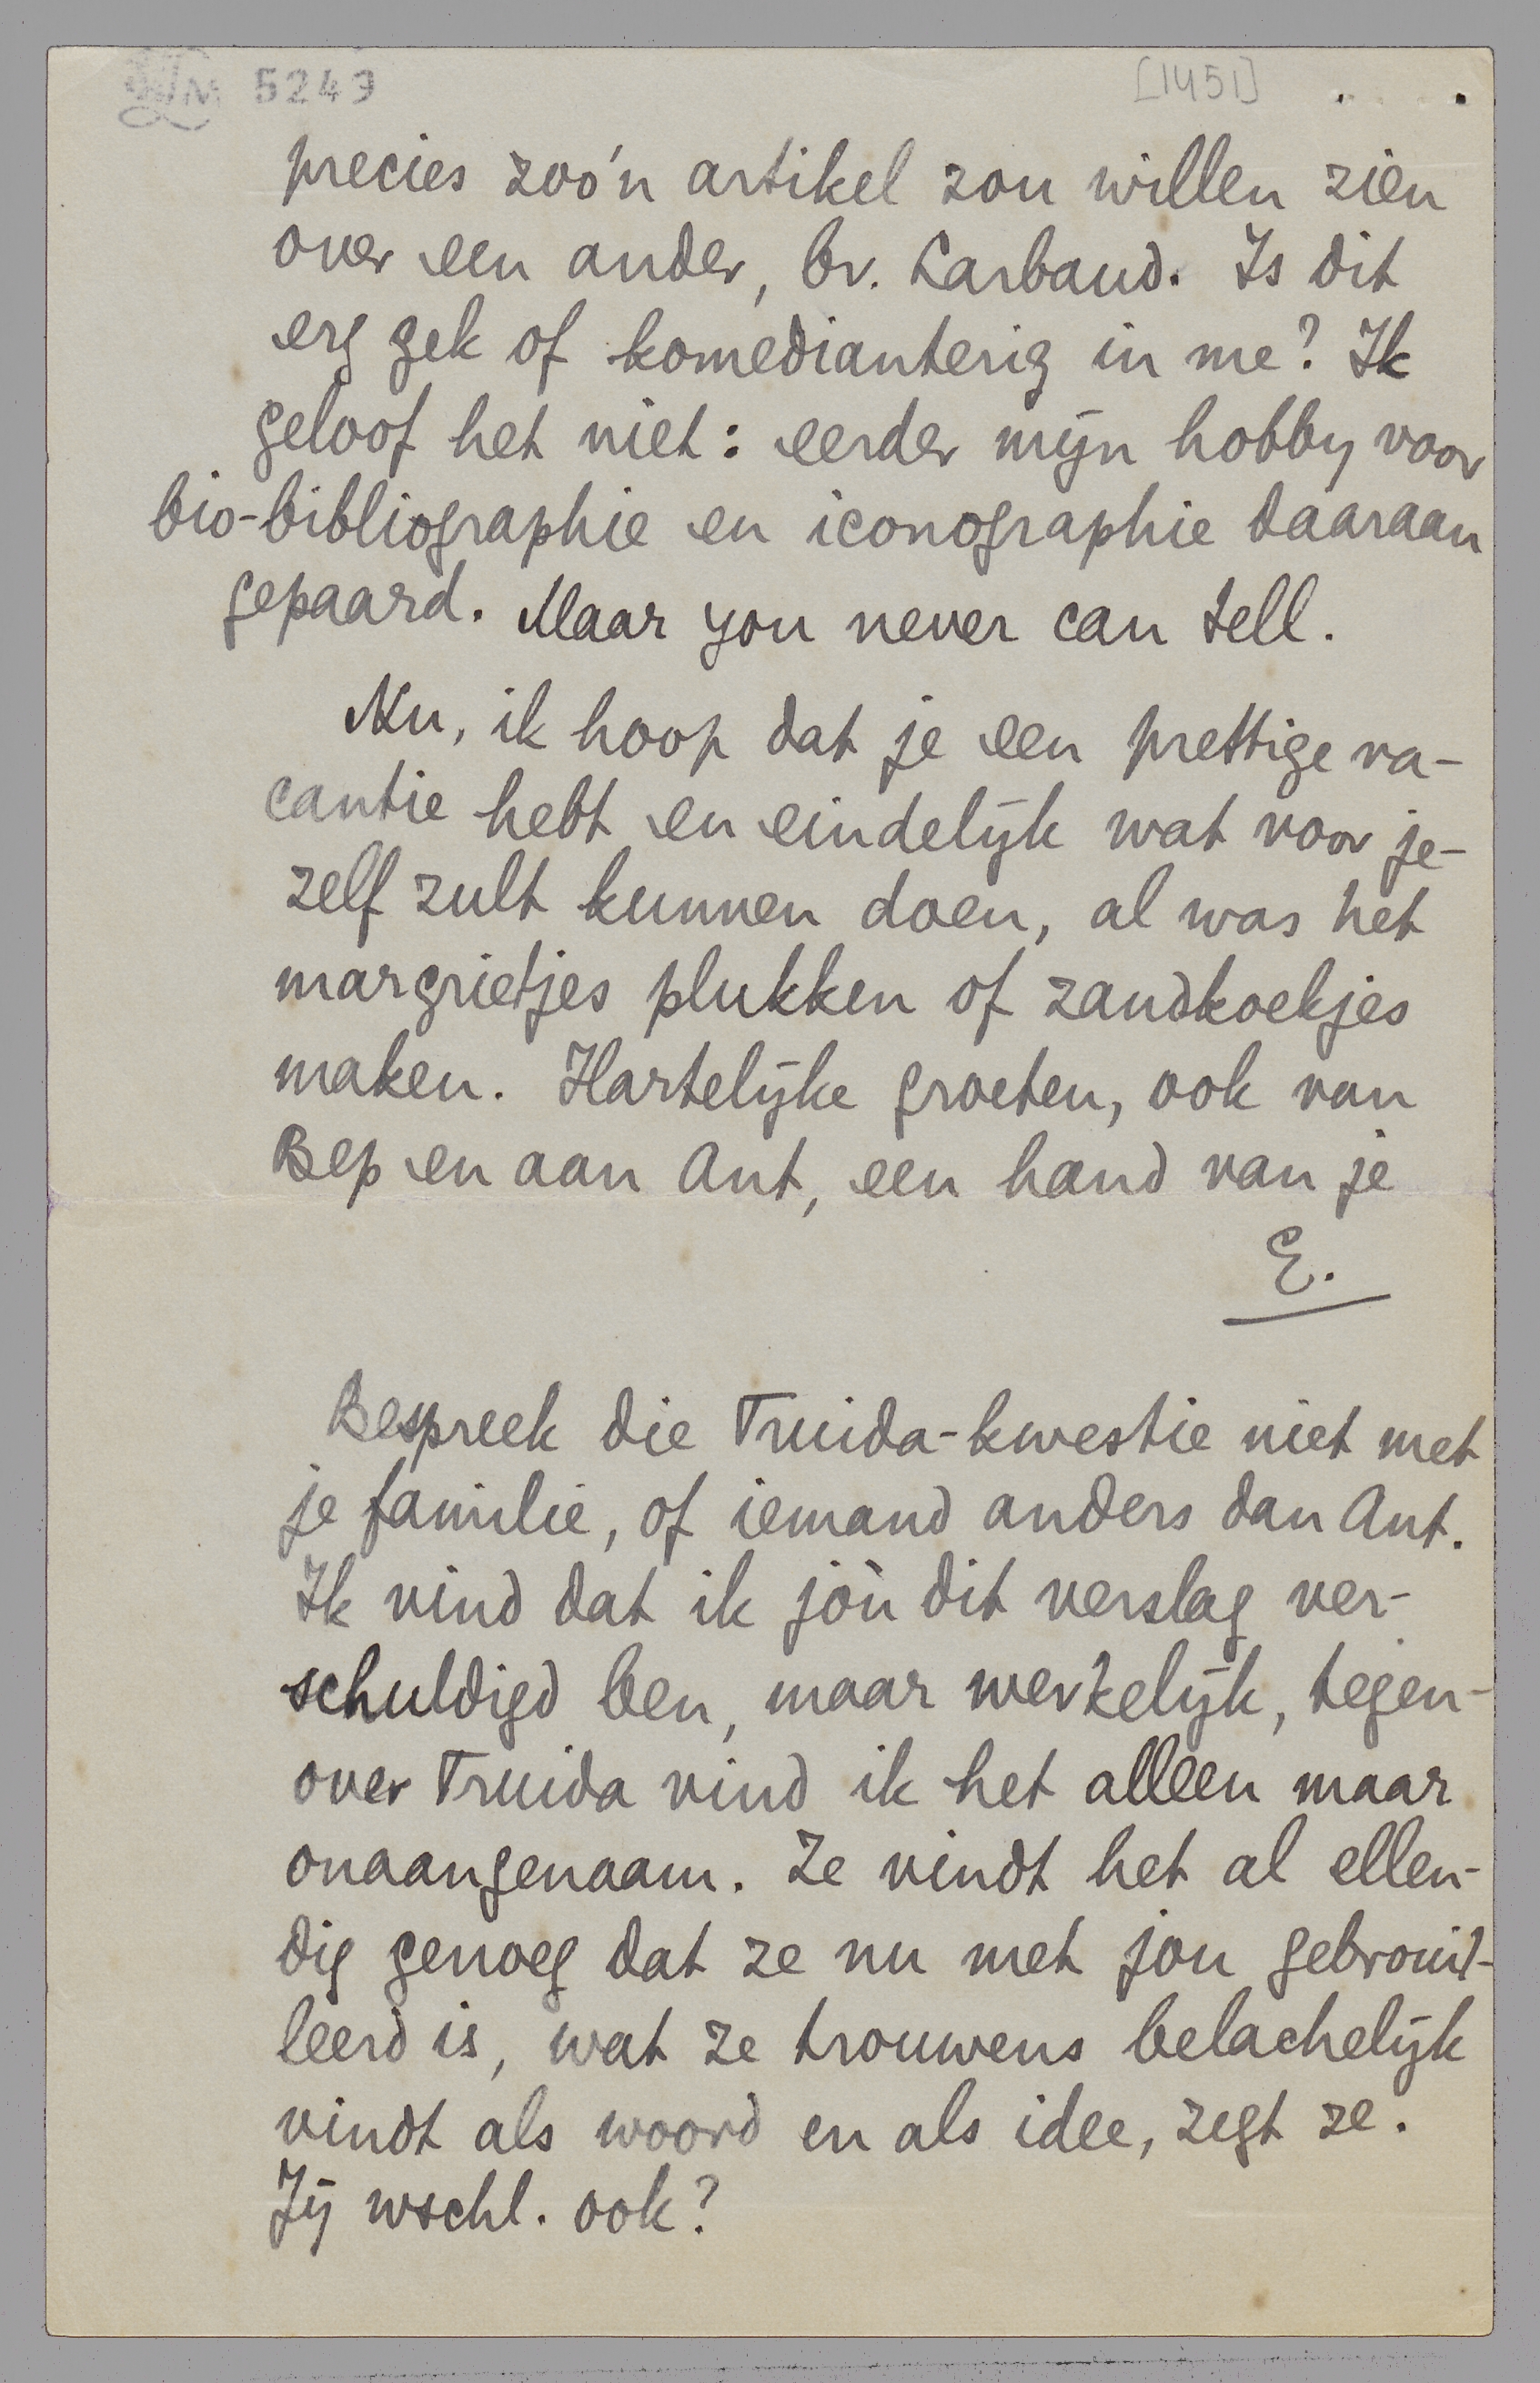 5249
[1451]
precies zoo'n artikel zou willen zien
over een ander, bv. Larbaud. Is dit
erg gek of komedianterig in me? Ik
geloof het niet: eerder mijn hobby voor
bio-bibliographie en iconographie daaraan
gepaard. Maar you never can tell.
Nu, ik hoop dat je een prettige va-
cantie hebt en eindelijk wat voor je-
zelf zult kunnen doen, al was het
margrietjes plukken of zandkoekjes
maken. Hartelijke groeten, ook van
Bep en aan Ant, een hand van je
E.
Bespreek die Truida-kwestie niet met
je familie, of iemand anders dan Ant.
Ik vind dat ik jòù dit verslag ver-
schuldigd ben, maar werkelijk, tegen-
over Truida vind ik het alleen maar
onaangenaam. Ze vindt het al ellen-
dig genoeg dat ze nu met jou gebrouil-
leerd is, wat ze trouwens belachelijk
vindt als woord en als idee, zegt ze.
Jij wschl. ook?